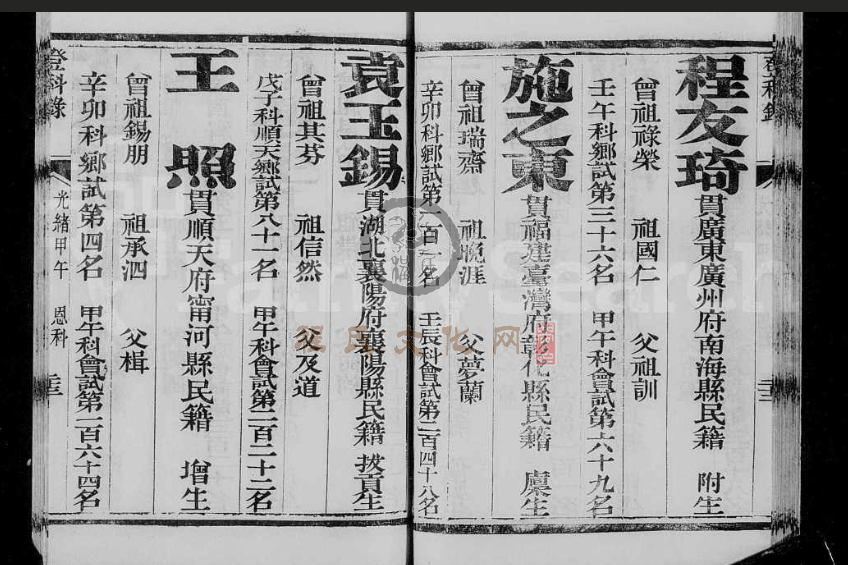 登科錄
程友琦 貫廣東廣州府南海縣民籍 附生
曾祖祿榮 祖國仁 父祖訓
壬午科鄉試第三十六名 甲午科會試第六十九名
施之東 貫福建臺灣府彰化縣民籍 廩生
曾祖瑞齋 祖晚涯 父夢蘭
辛卯科鄉試第一百一名 壬辰科會試第二百四十八名
袁玉錫 貫湖北襄陽府襄陽縣民籍 拔貢生
曾祖其芬 祖信然 父及道
戊子科順天鄉試第八十一名 甲午科會試第二百二十二名
王照 貫順天府甯河縣民籍 增生
曾祖錫朋 祖承泗 父楫
辛卯科鄉試第四名 甲午科會試第一百六十四名
登科錄 光緒甲午 恩科 二十三
FamilySearch